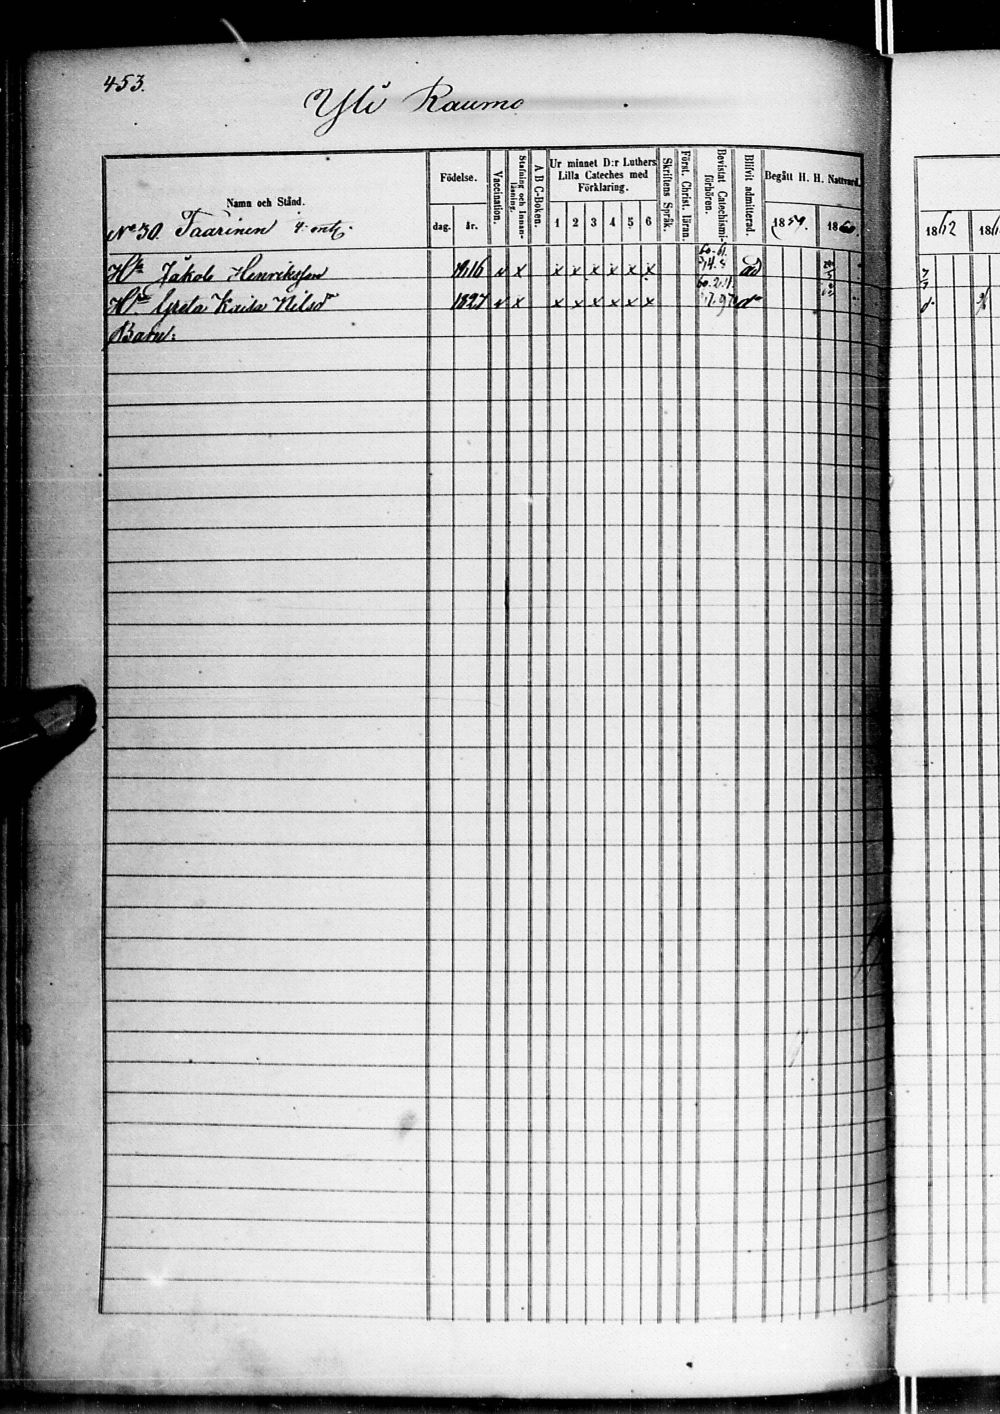 453.
Yli Raumo
Namn och Stånd.
Födelse.
dag.
år.
Vaccination.
Stafning och Innanläsning.
A B C-Boken.
Ur minnet D:r Luthers
Lilla Cateches med
Förklaring.
1 2 3 4 5 6
Skriftens Språk.
Först. Christ. läran.
Bevistat Catechismiförhören.
Blifvit admitterad.
Begått H. H. Nattvard.
1859.
1860.
1862
186
No 30. Taarinen
Jakob Henriksson 1816 v x x x x x x x ad
Greta Kaisa Nilsdr 1827 v x x x x x x x
Barn: